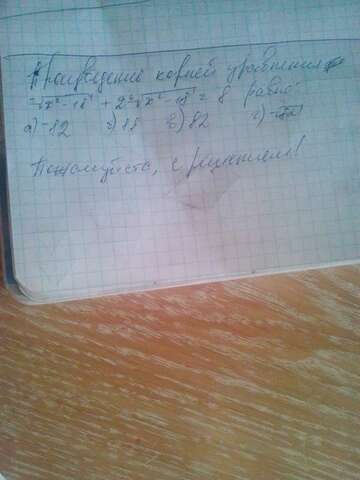 Произведение корней уравнения
√x²-18 + 2 √x²-18 = 8 равно:
а) -82 б) 18 в) 82 г) -√82
Пожалуйста, с решением!